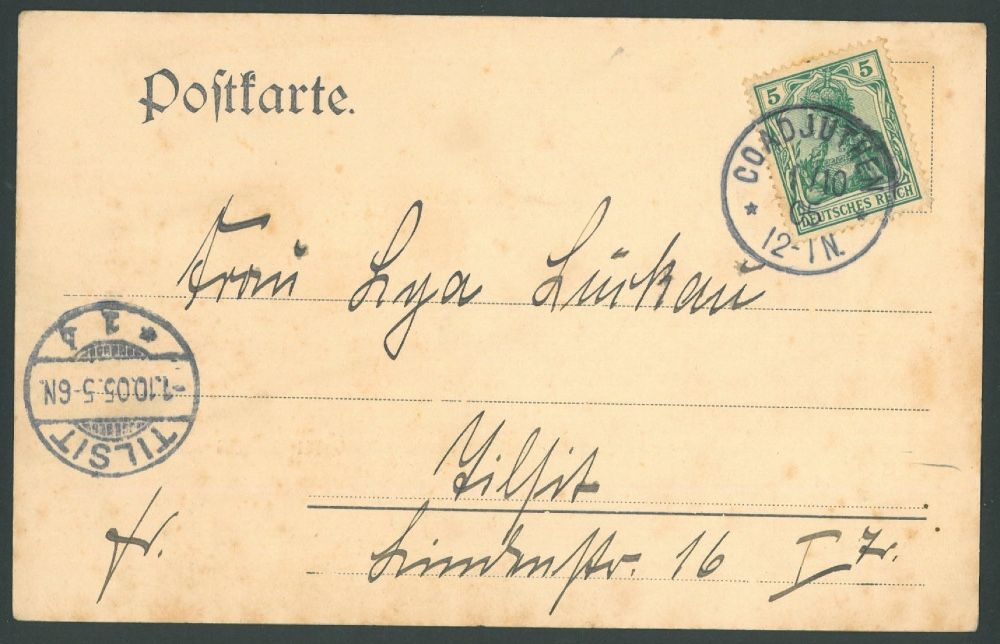 Postkarte.
5 5
DEUTSCHES REICH
COADJUTHEN
1/10
05
* 12-1N. *
Frau Lya Lückau
* 1 b
-1.10.05.5-6N.
TILSIT
Tilsit
fr.
Lindenstr. 16 I Tr.